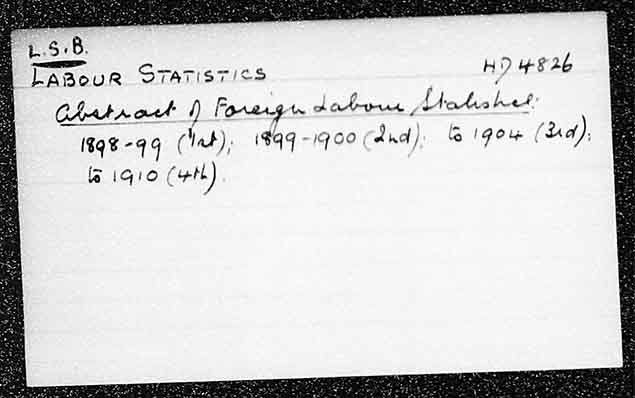 L.S.B.
LABOUR STATISTICS HD 4826
Abstract of Foreign Labour Statistics.
1898-99 (1st); 1899-1900 (2nd); to 1904 (3rd);
to 1910 (4th).